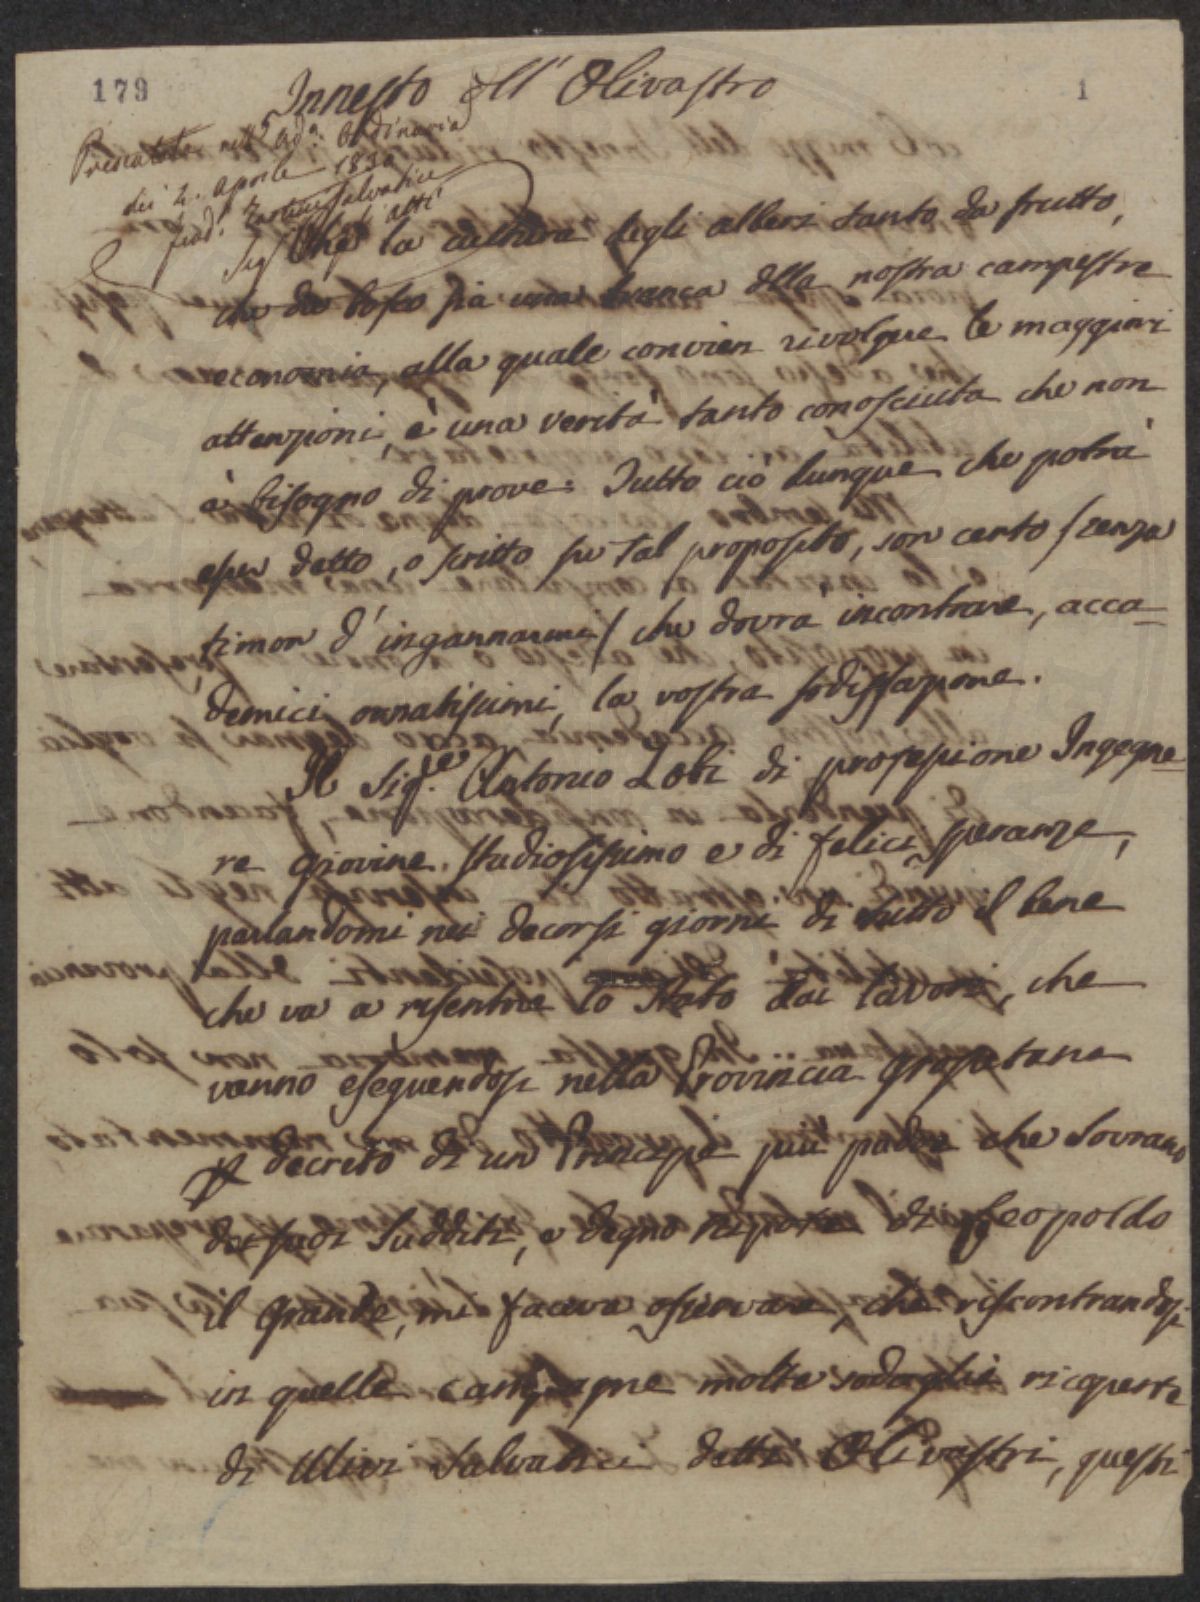 179
1
Innesto dell' Olivastro
Presentata nell' Ad.a Ordinaria
dei 4. Aprile 1830
Ferd. Tartini Salvatici
Seg. degli atti
Che la cultura degli alberi tanto da frutto,
che da bosco sia una branca della nostra campestre
economia, alla quale convien rivolgere le maggiori
attenzioni, è una verità tanto conosciuta che non
à bisogno di prove. Tutto ciò dunque che potrà
esser detto, o scritto su tal proposito, son certo (senza
timor d'ingannarmi) che dovrà incontrare, acca-
demici ornatissimi, la vostra sodisfazione.
Il Sig.re Antonio Lobi di professione Ingegne-
re giovine studiosissimo e di felici speranze,
parlandomi nei decorsi giorni di tutto il bene
che va a risentire lo Stato dai lavori, che
vanno eseguendosi nella Provincia Grossetana
p decreto di un Principe più padre che Sovrano
dei suoi Sudditi, e degno nipote di Leopoldo
il Grande, mi faceva osservare, che riscontrandosi
in quelle campagne molte sodaglie ricoperte
di Ulivi salvatici detti Olivastri, questi